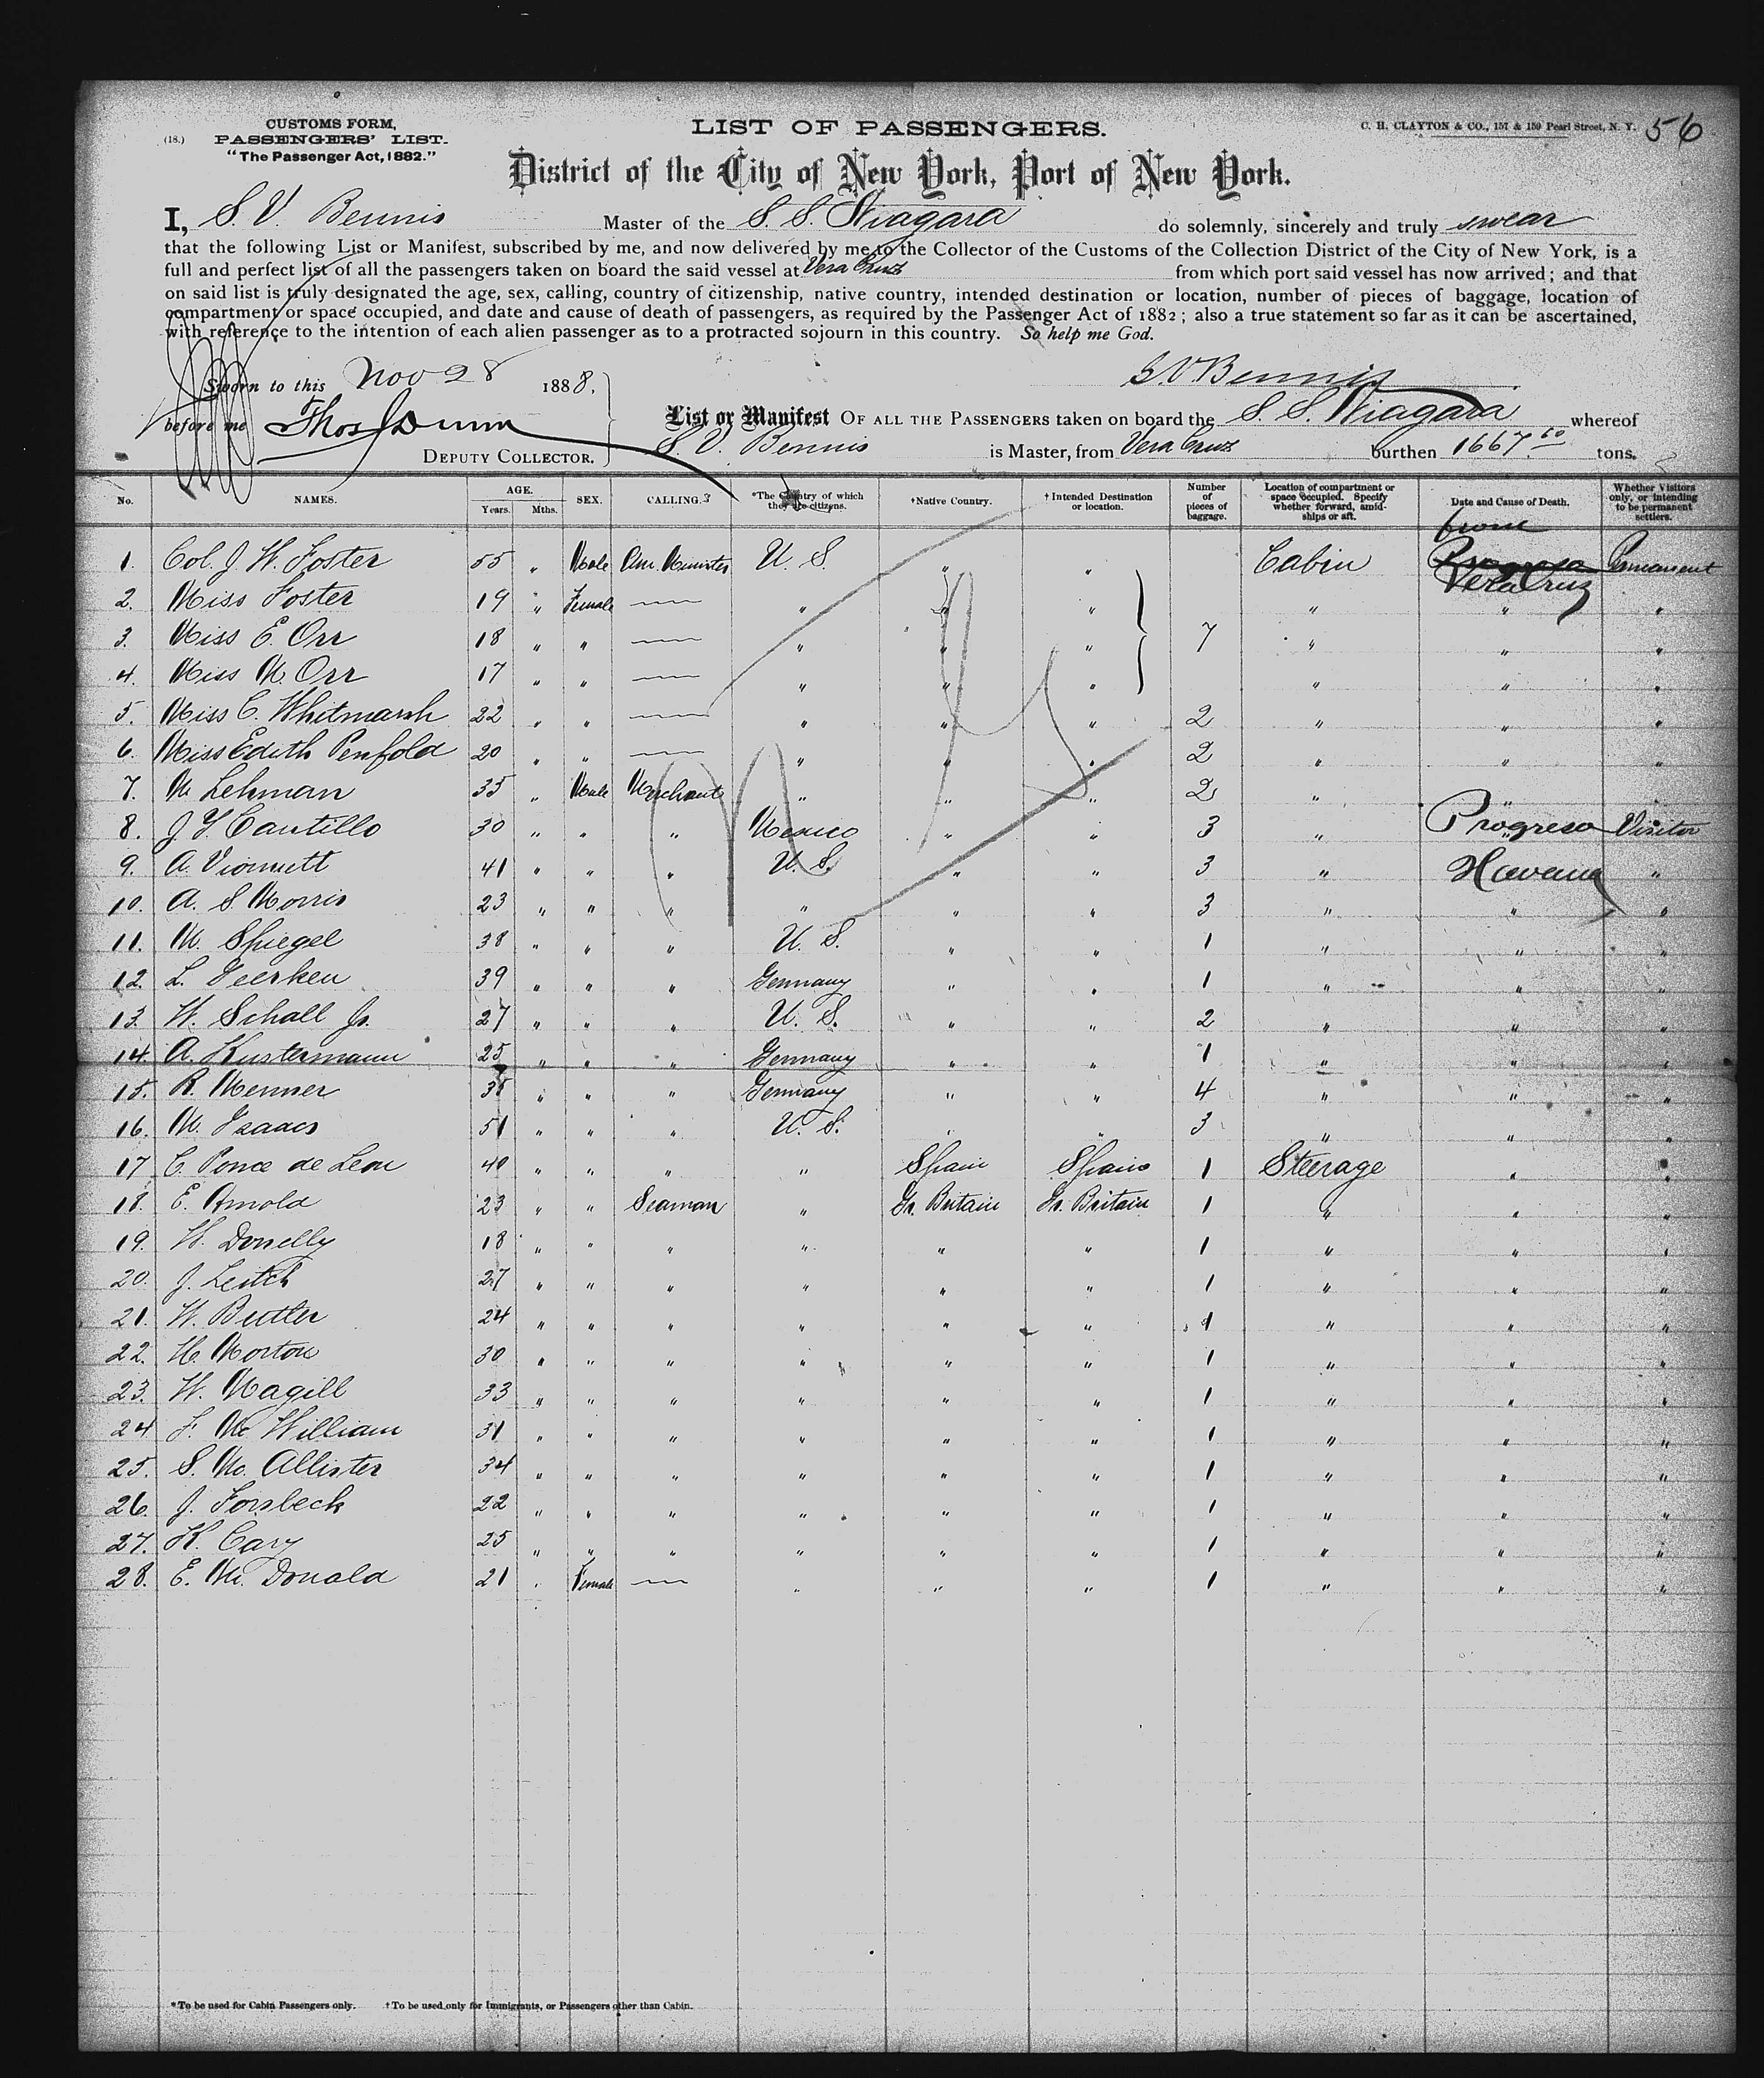 CUSTOMS FORM,
(18.) PASSENGERS' LIST.
"The Passenger Act, 1882."
LIST OF PASSENGERS.
C. H. CLAYTON & CO., 157 & 159 Pearl Street, N. Y. 56
District of the City of New York, Port of New York.
I, S. V. Bennis Master of the S. S. Niagara do solemnly, sincerely and truly swear
that the following List or Manifest, subscribed by me, and now delivered by me to the Collector of the Customs of the Collection District of the City of New York, is a
full and perfect list of all the passengers taken on board the said vessel at Vera Cruz from which port said vessel has now arrived; and that
on said list is truly designated the age, sex, calling, country of citizenship, native country, intended destination or location, number of pieces of baggage, location of
compartment or space occupied, and date and cause of death of passengers, as required by the Passenger Act of 1882; also a true statement so far as it can be ascertained,
with reference to the intention of each alien passenger as to a protracted sojourn in this country. So help me God.
Sworn to this Nov 28 1888. S V Bennis
before me Thos J Dunn
DEPUTY COLLECTOR.
List or Manifest OF ALL THE PASSENGERS taken on board the S. S. Niagara whereof
S. V. Bennis is Master, from Vera Cruz burthen 1667.60 tons.
No. NAMES. AGE. Years. Mths. SEX. CALLING. *The Country of which they are citizens. †Native Country. †Intended Destination or location. Number of pieces of baggage. Location of compartment or space occupied. Specify whether forward, amidships or aft. Date and Cause of Death. Whether Visitors only, or intending to be permanent settlers.
from
1. Col. J. W. Foster 55 " Male Am. Minister U. S. " " Cabin Progreso Permanent
Vera Cruz
2. Miss Foster 19 " Female — " " " " " "
3. Miss E. Orr 18 " " — " " " 7 " " "
4. Miss M. Orr 17 " " — " " " " " "
5. Miss C. Whitmarsh 22 " " — " " " 2 " " "
6. Miss Edith Penfold 20 " " — " " " 2 " " "
7. M Lehman 35 " Male Merchant " " " 2 " " "
8. J. Y. Cantillo 30 " " " Mexico " " 3 " Progreso Visitor
9. A. Vionnett 41 " " " U. S. " " 3 " Havana "
10. A. S. Morris 23 " " " " " " 3 " " "
11. M. Spiegel 38 " " " U. S. " " 1 " " "
12. L. Geerken 39 " " " Germany " " 1 " " "
13. W. Schall Jr. 27 " " " U. S. " " 2 " " "
14. A. Kustermann 25 " " " Germany " " 1 " " "
15. R. Menner 35 " " " Germany " " 4 " " "
16. M. Isaacs 51 " " " U. S. " " 3 " " "
17 C. Ponce de Leon 40 " " " " Spain Spain 1 Steerage " "
18. E. Arnold 23 " " Seaman " Gr. Britain Gr. Britain 1 " " "
19. W. Donelly 18 " " " " " " 1 " " "
20. J. Leitch 27 " " " " " " 1 " " "
21. W. Butler 24 " " " " " " 1 " " "
22. H. Morton 30 " " " " " " 1 " " "
23. W. Magill 33 " " " " " " 1 " " "
24 F. Mc William 31 " " " " " " 1 " " "
25. S. Mc. Allister 34 " " " " " " 1 " " "
26. J. Forsbeck 22 " " " " " " 1 " " "
27. K. Cary 25 " " " " " " 1 " " "
28. E. Mc. Donald 21 " Female — " " " 1 " " "
*To be used for Cabin Passengers only. †To be used only for Immigrants, or Passengers other than Cabin.